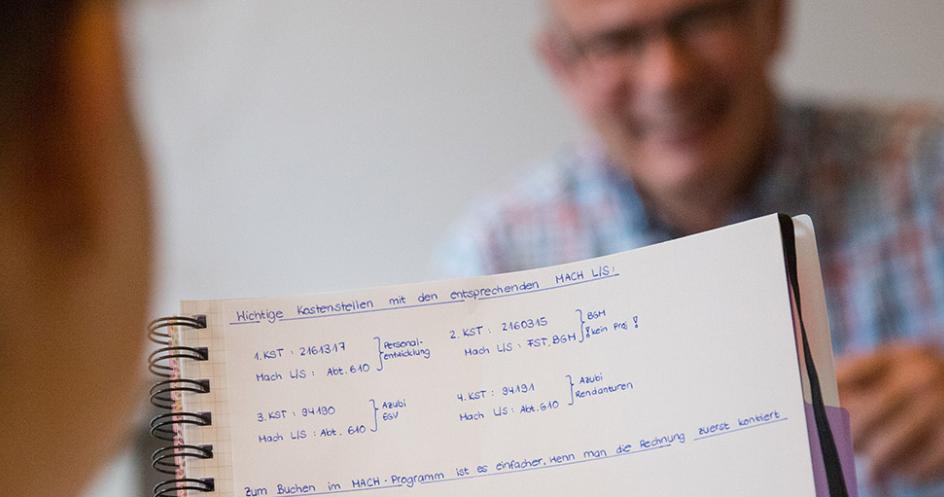 Wichtige Kostenstellen mit den entsprechenden MACH L/S:
1. KST : 2161317
Mach L/S : Abt. 610
Personal-
entwicklung
2. KST : 2160315
Mach L/S : FST. BGM
BGM
! kein Proj !
3. KST : 94190
Mach L/S : Abt. 610
Azubi
EGV
4. KST : 94191
Mach L/S : Abt. 610
Azubi
Rendanturen
Zum Buchen im MACH-Programm ist es einfacher, wenn man die Rechnung zuerst kontiert